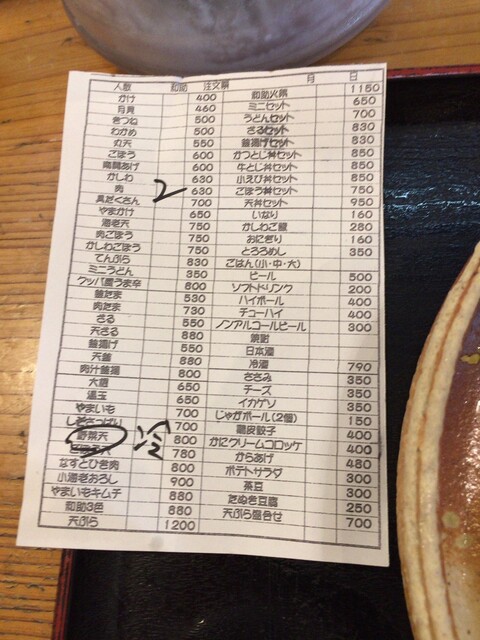 人数 和助 注文票 月 日
かけ 400
月見 460
きつね 500
わかめ 500
丸天 550
ごぼう 600
南関あげ 600
かしわ 630
肉 2 630
具だくさん 700
やまかけ 650
海老天 750
肉ごぼう 750
かしわごぼう 750
てんぷら 830
ミニうどん 350
クッパ風うま辛 800
釜たま 530
肉たま 730
ざる 550
天ざる 880
釜揚げ 550
天釜 880
肉汁釜揚 800
大盛 650
温玉 650
やまいも 700
700
野菜天 冷 800
780
なすとひき肉 800
小海老おろし 900
やまいもキムチ 880
和助3色 880
天ぷら 1200
和助火鍋 1150
ミニセット 650
うどんセット 700
ざるセット 830
釜揚げセット 830
かつとじ丼セット 850
牛とじ丼セット 850
小えび丼セット 850
ごぼう丼セット 750
天丼セット 950
いなり 160
かしわご飯 280
おにぎり 160
とろろめし 350
ごはん(小・中・大)
ビール 500
ソフトドリンク 200
ハイボール 400
チューハイ 400
ノンアルコールビール 300
焼酎
日本酒
冷酒 790
ささみ 350
チーズ 350
イカゲソ 350
じゃがボール(2個) 150
餃子 400
かにクリームコロッケ 400
からあげ 480
ポテトサラダ 300
茶豆 300
たぬき豆腐 250
天ぷら盛合せ 700